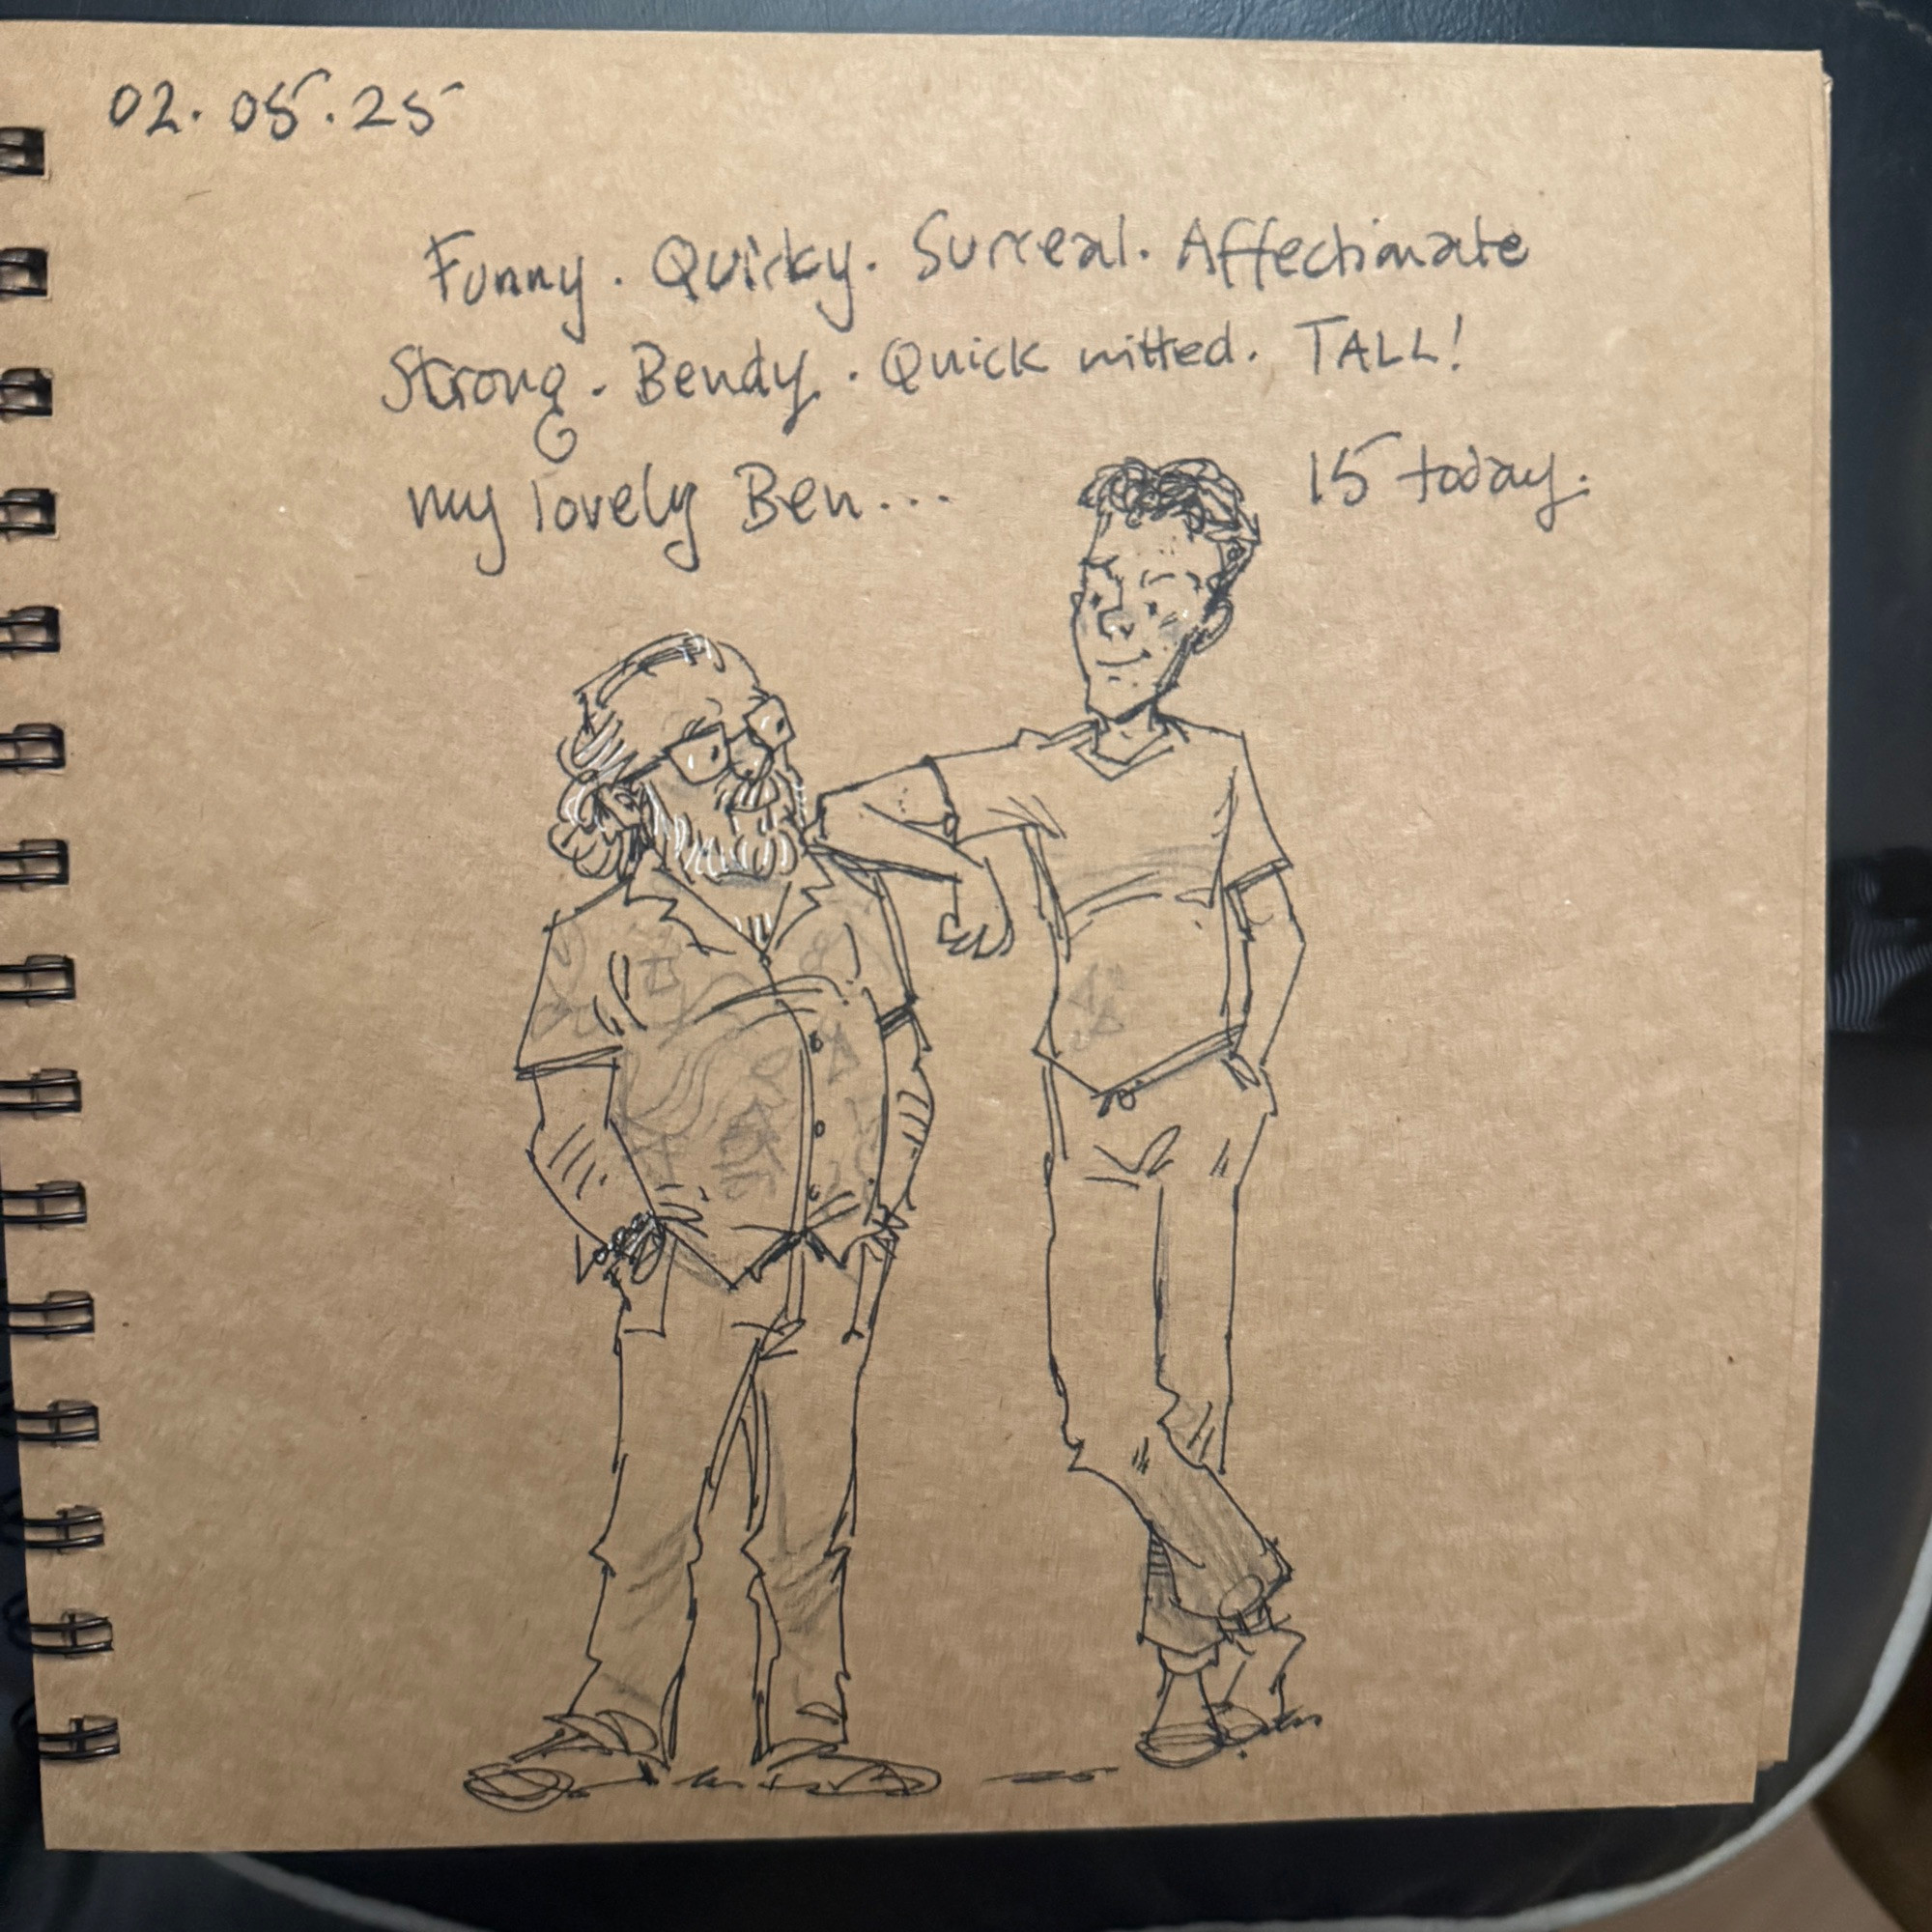 02.05.25
Funny. Quirky. Surreal. Affectionate
Strong. Bendy. Quick witted. TALL!
my lovely Ben... 15 today.